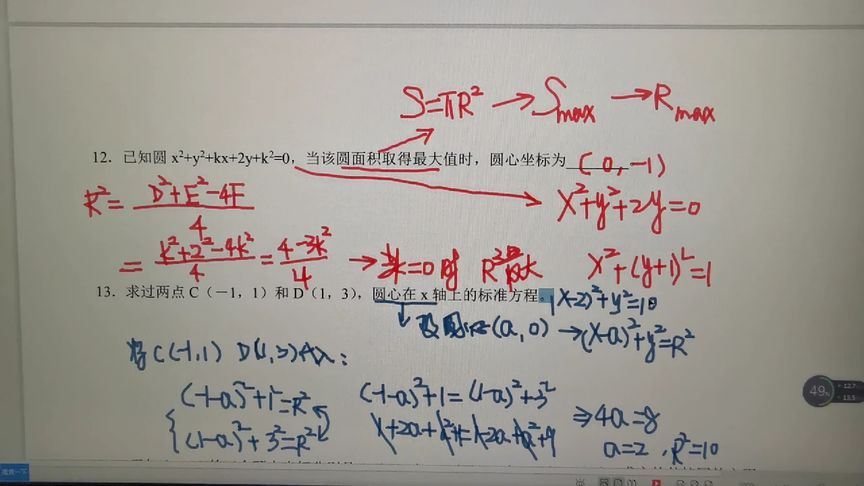 S=πR² → Smax → Rmax
12. 已知圆 x²+y²+kx+2y+k²=0，当该圆面积取得最大值时，圆心坐标为 (0,-1)
R²= D²+E²-4F / 4
x²+y²+2y=0
= k²+2²-4k² / 4 = 4-3k² / 4 → 当k=0时 R²最大 x²+(y+1)²=1
13. 求过两点 C（－1，1）和 D（1，3），圆心在 x 轴上的标准方程。(x-2)²+y²=10
设圆心(a,0) → (x-a)²+y²=R²
将C(-1,1) D(1,3)代入:
(-1-a)²+1²=R² (-1-a)²+1=(1-a)²+3²
(1-a)²+3²=R² 1+2a+a²+1=1-2a+a²+9 ⇒4a=8
a=2, R²=10
49%